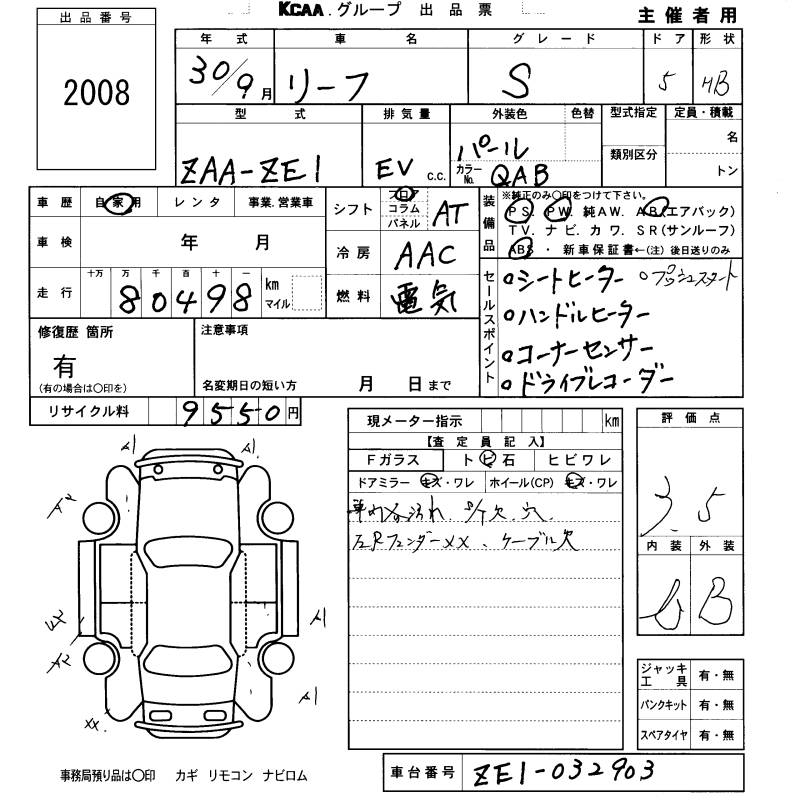 KCAA.グループ 出品票
主催者用
出品番号
2008
年式 車名 グレード ドア 形状
30/9月 リーフ S 5 HB
型式 排気量 外装色 色替 型式指定 定員・積載
ZAA-ZE1 EV C.C. パール 類別区分 名
カラーNo. QAB トン
車歴 自家用 レンタ 事業.営業車
シフト フロア コラム パネル AT
装備品 ※純正のみ〇印をつけて下さい。
PS. PW. 純AW. AB(エアバック)
TV. ナビ. カワ. SR(サンルーフ)
ABS ・ 新車保証書←(注) 後日送りのみ
車検 年 月
冷房 AAC
走行 十万 万 千 百 十 一
80498 km マイル
燃料 電気
セールスポイント
シートヒーター プッシュスタート
ハンドルヒーター
コーナーセンサー
ドライブレコーダー
修復歴 箇所
有
(有の場合は〇印を)
注意事項
名変期日の短い方 月 日まで
リサイクル料 9550円
現メーター指示 km
【査定員記入】
Fガラス ト ビ 石 ヒビワレ
ドアミラー キズ・ワレ ホイール(CP) キズ・ワレ
評価点
3.5
左Rフェンダーxx、ケーブル欠
内装 外装
B
A1 A1
A2
A2 A1
A1
xx.
ジャッキ工具 有・無
パンクキット 有・無
スペアタイヤ 有・無
事務局預り品は〇印 カギ リモコン ナビロム
車台番号 ZE1-032903